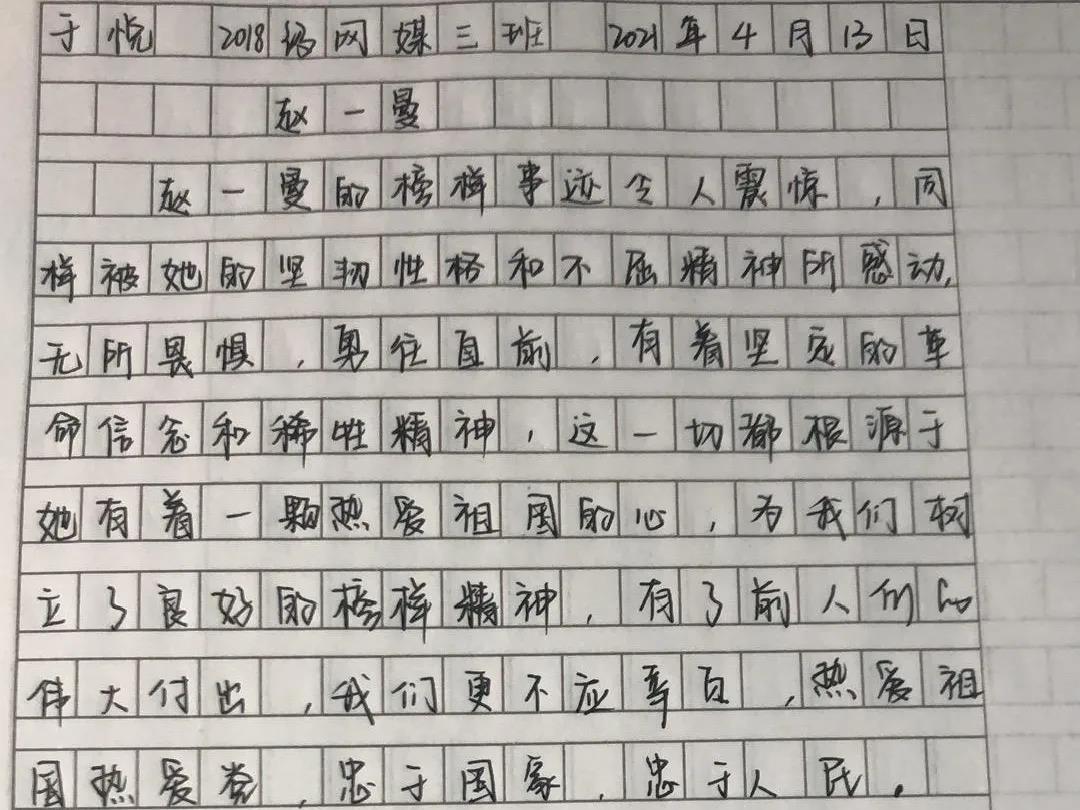 于悦 2018级网媒三班 2021年4月13日
赵一曼
赵一曼的榜样事迹令人震惊，同
样被她的坚韧性格和不屈精神所感动，
无所畏惧，勇往直前，有着坚定的革
命信念和牺牲精神，这一切都根源于
她有着一颗热爱祖国的心，为我们树
立了良好的榜样精神，有了前人们的
伟大付出，我们更不应辜负，热爱祖
国热爱党，忠于国家，忠于人民。